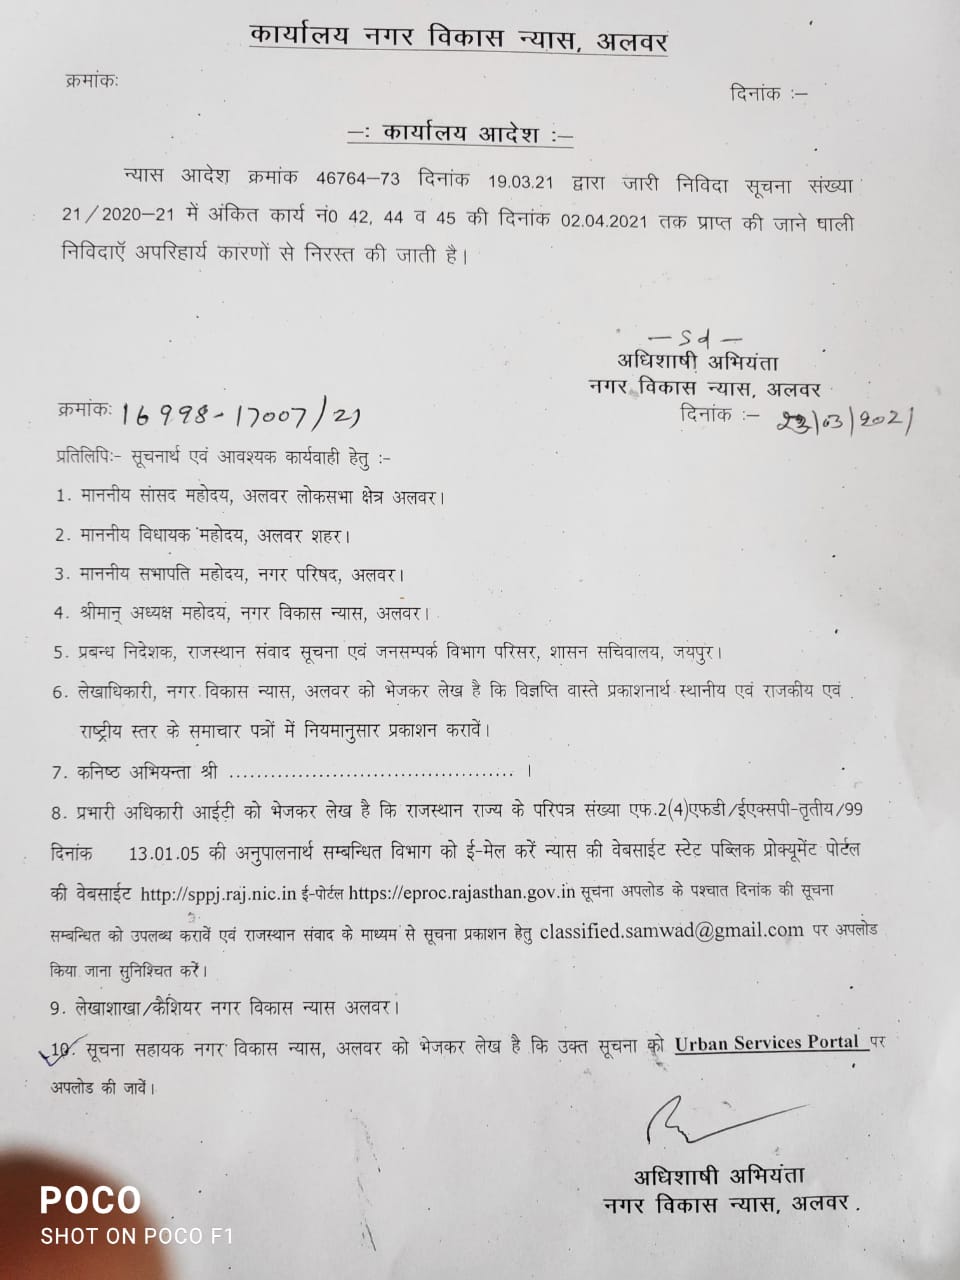 कार्यालय नगर विकास न्यास, अलवर
क्रमांकः
दिनांक :–
–: कार्यालय आदेश :–
न्यास आदेश क्रमांक 46764–73 दिनांक 19.03.21 द्वारा जारी निविदा सूचना संख्या
21/2020–21 में अंकित कार्य नं0 42, 44 व 45 की दिनांक 02.04.2021 तक प्राप्त की जाने वाली
निविदाएँ अपरिहार्य कारणों से निरस्त की जाती है।
– Sd –
अधिशाषी अभियंता
नगर विकास न्यास, अलवर
क्रमांकः 16998-17007/21
दिनांक :– 23/03/2021
प्रतिलिपिः– सूचनार्थ एवं आवश्यक कार्यवाही हेतु :–
1. माननीय सांसद महोदय, अलवर लोकसभा क्षेत्र अलवर।
2. माननीय विधायक महोदय, अलवर शहर।
3. माननीय सभापति महोदय, नगर परिषद, अलवर।
4. श्रीमान् अध्यक्ष महोदय, नगर विकास न्यास, अलवर।
5. प्रबन्ध निदेशक, राजस्थान संवाद सूचना एवं जनसम्पर्क विभाग परिसर, शासन सचिवालय, जयपुर।
6. लेखाधिकारी, नगर विकास न्यास, अलवर को भेजकर लेख है कि विज्ञप्ति वास्ते प्रकाशनार्थ स्थानीय एवं राजकीय एवं
राष्ट्रीय स्तर के समाचार पत्रों में नियमानुसार प्रकाशन करावें।
7. कनिष्ठ अभियन्ता श्री .......................................... ।
8. प्रभारी अधिकारी आईटी को भेजकर लेख है कि राजस्थान राज्य के परिपत्र संख्या एफ.2(4)एफडी/ईएक्सपी-तृतीय/99
दिनांक 13.01.05 की अनुपालनार्थ सम्बन्धित विभाग को ई-मेल करें न्यास की वेबसाईट स्टेट पब्लिक प्रोक्यूमेंट पोर्टल
की वेबसाईट http://sppj.raj.nic.in ई-पोर्टल https://eproc.rajasthan.gov.in सूचना अपलोड के पश्चात दिनांक की सूचना
सम्बन्धित को उपलब्ध करावें एवं राजस्थान संवाद के माध्यम से सूचना प्रकाशन हेतु classified.samwad@gmail.com पर अपलोड
किया जाना सुनिश्चित करें।
9. लेखाशाखा/कैशियर नगर विकास न्यास अलवर।
10. सूचना सहायक नगर विकास न्यास, अलवर को भेजकर लेख है कि उक्त सूचना को Urban Services Portal पर
अपलोड की जावें।
अधिशाषी अभियंता
नगर विकास न्यास, अलवर.
POCO
SHOT ON POCO F1